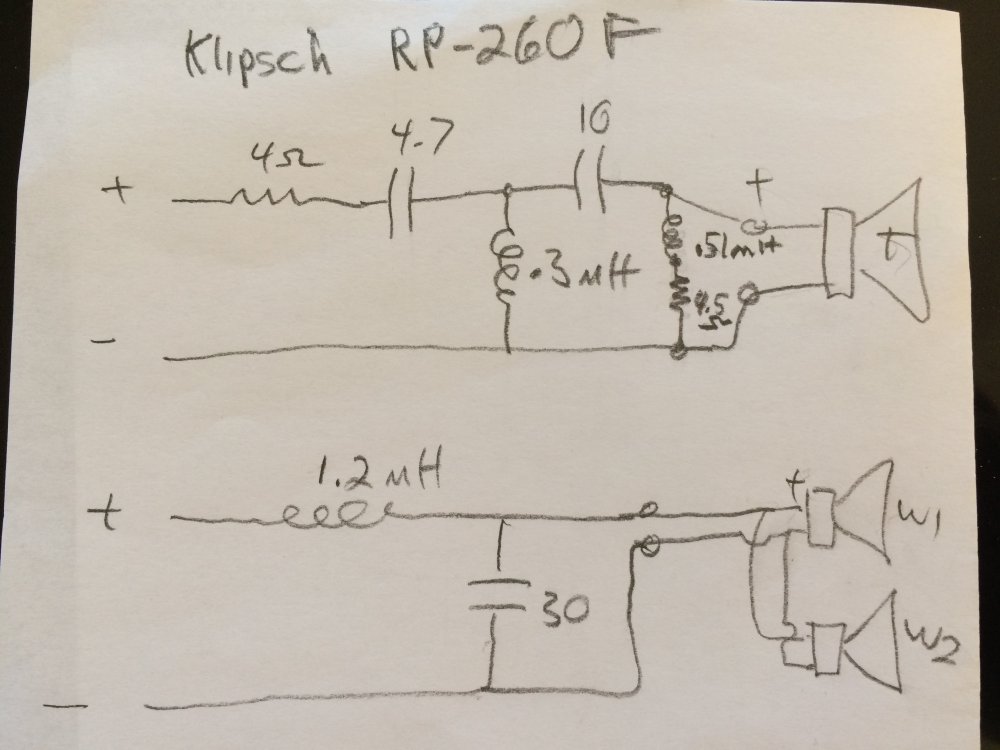 Klipsch RP-260F
4Ω 4.7 10
+ +
.3mH .51mH t
4.5
Ω
-
1.2mH
+ + W1
30 W2
-